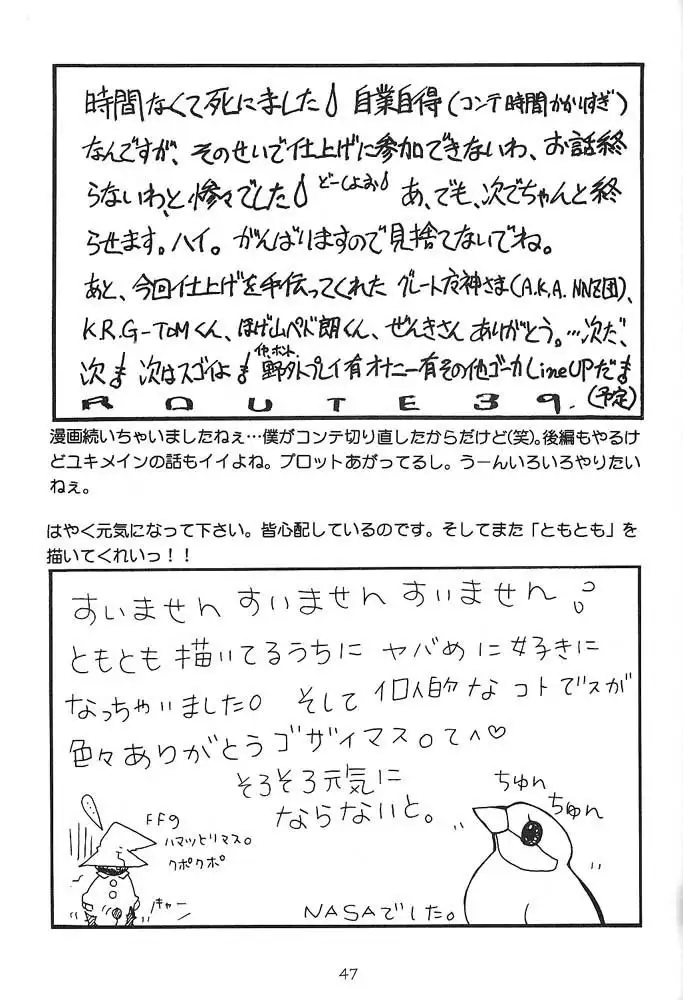 時間なくて死にました 自業自得(コンテ時間かかりすぎ)
なんですが、そのせいで仕上げに参加できないわ、お話終
らないわと、惨々でした どーしよお あ、でも、次でちゃんと終
らせます。ハイ。がんばりますので見捨てないでね。
あと、今回仕上げを手伝ってくれた グレート店神さま(A.K.A. NNZ団)、
K.R.G-ToMくん、ほげ山ペド朗くん、ぜんきさん ありがとう。…次だ、
次も 次はスゴイよ 野外プレイ有オナニー有その他ゴーカLineUPだ
(予定)
ROUTE39.
漫画続いちゃいましたねぇ…僕がコンテ切り直したからだけど(笑)。後編もやるけ
どユキメインの話もイイよね。プロットあがってるし。うーんいろいろやりたい
ねぇ。
はやく元気になって下さい。皆心配しているのです。そしてまた「ともとも」を
描いてくれいっ!!
すいません すいません すいません
ともとも 描いてるうちに ヤバめに好きに
なっちゃいました。 そして 個人的な コトでスが
色々ありがとうゴザイマス。て^♡
そろそろ元気に
ならないと。
ちゅん
ちゅん
FFの
ハマッとりマス。
クポクポ
キャー
NASAでした。
47